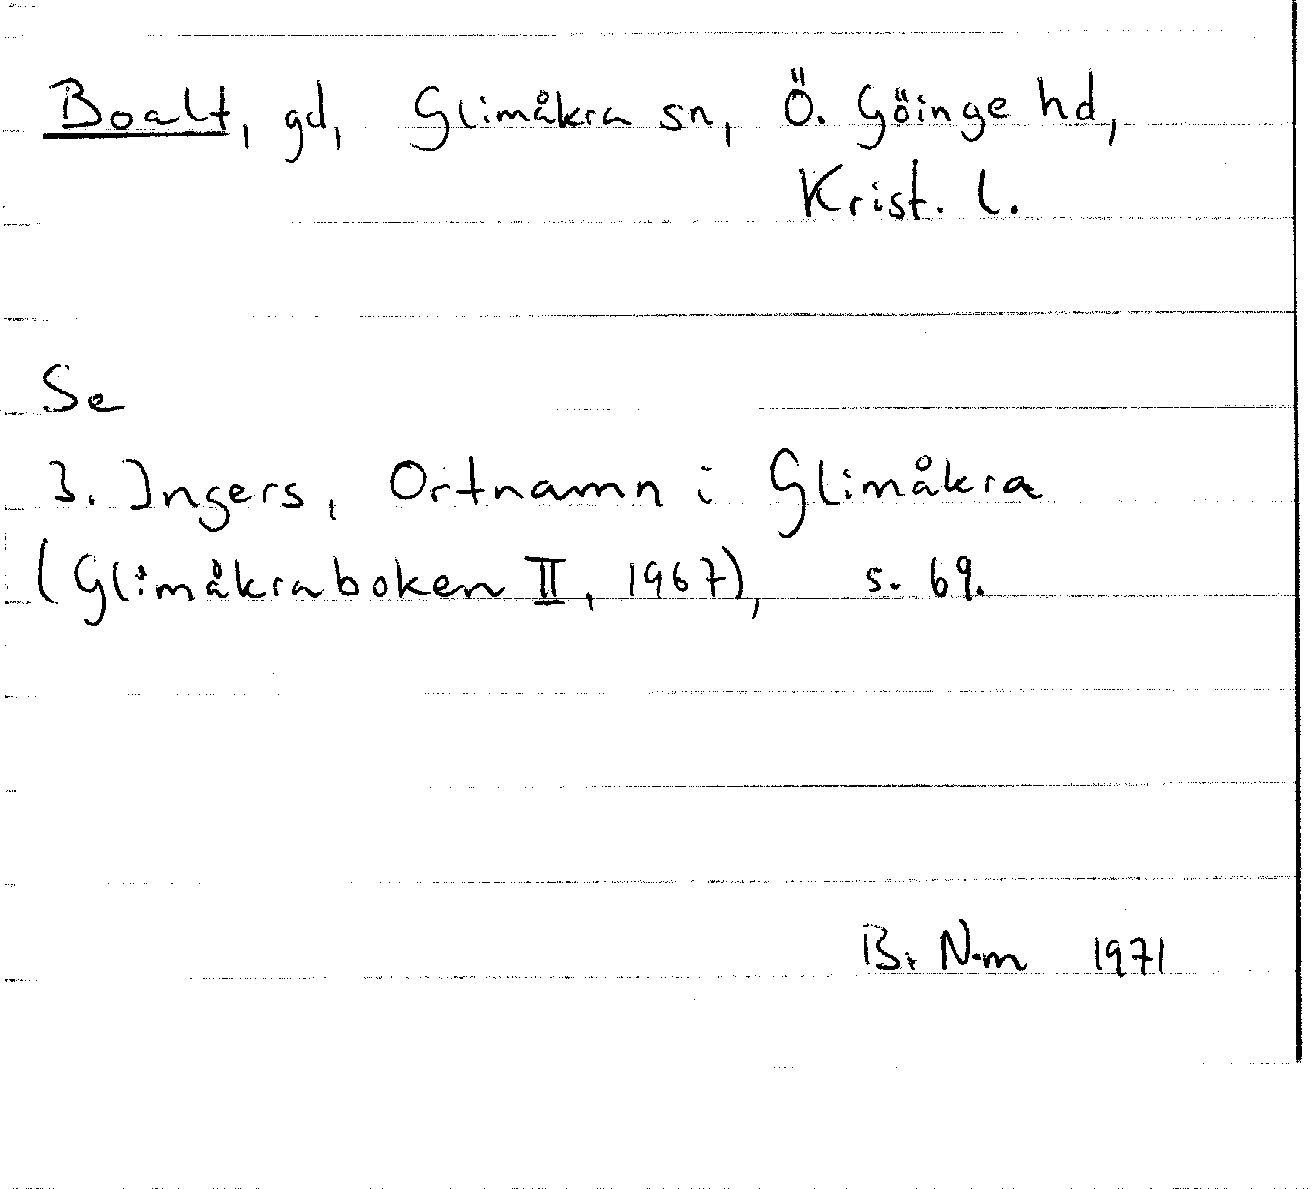 Boalt, gd, Glimåkra sn, Ö. Göinge hd,
Krist. l.
Se
I. Ingers, Ortnamn i Glimåkra
(Glimåkraboken II, 1967), s. 69.
B. N-m 1971